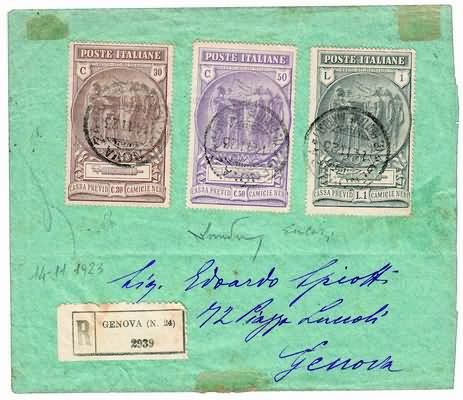 POSTE ITALIANE
C 30
CASSA PREVID C.30 CAMICIE NERE
POSTE ITALIANE
C 50
CASSA PREVID C.50 CAMICIE NERE
POSTE ITALIANE
L 1
CASSA PREVID L.1 CAMICIE NERE
14-11 1923
Sig. Edoardo
72 Piazza
Genova
R
GENOVA (N. 24)
2939